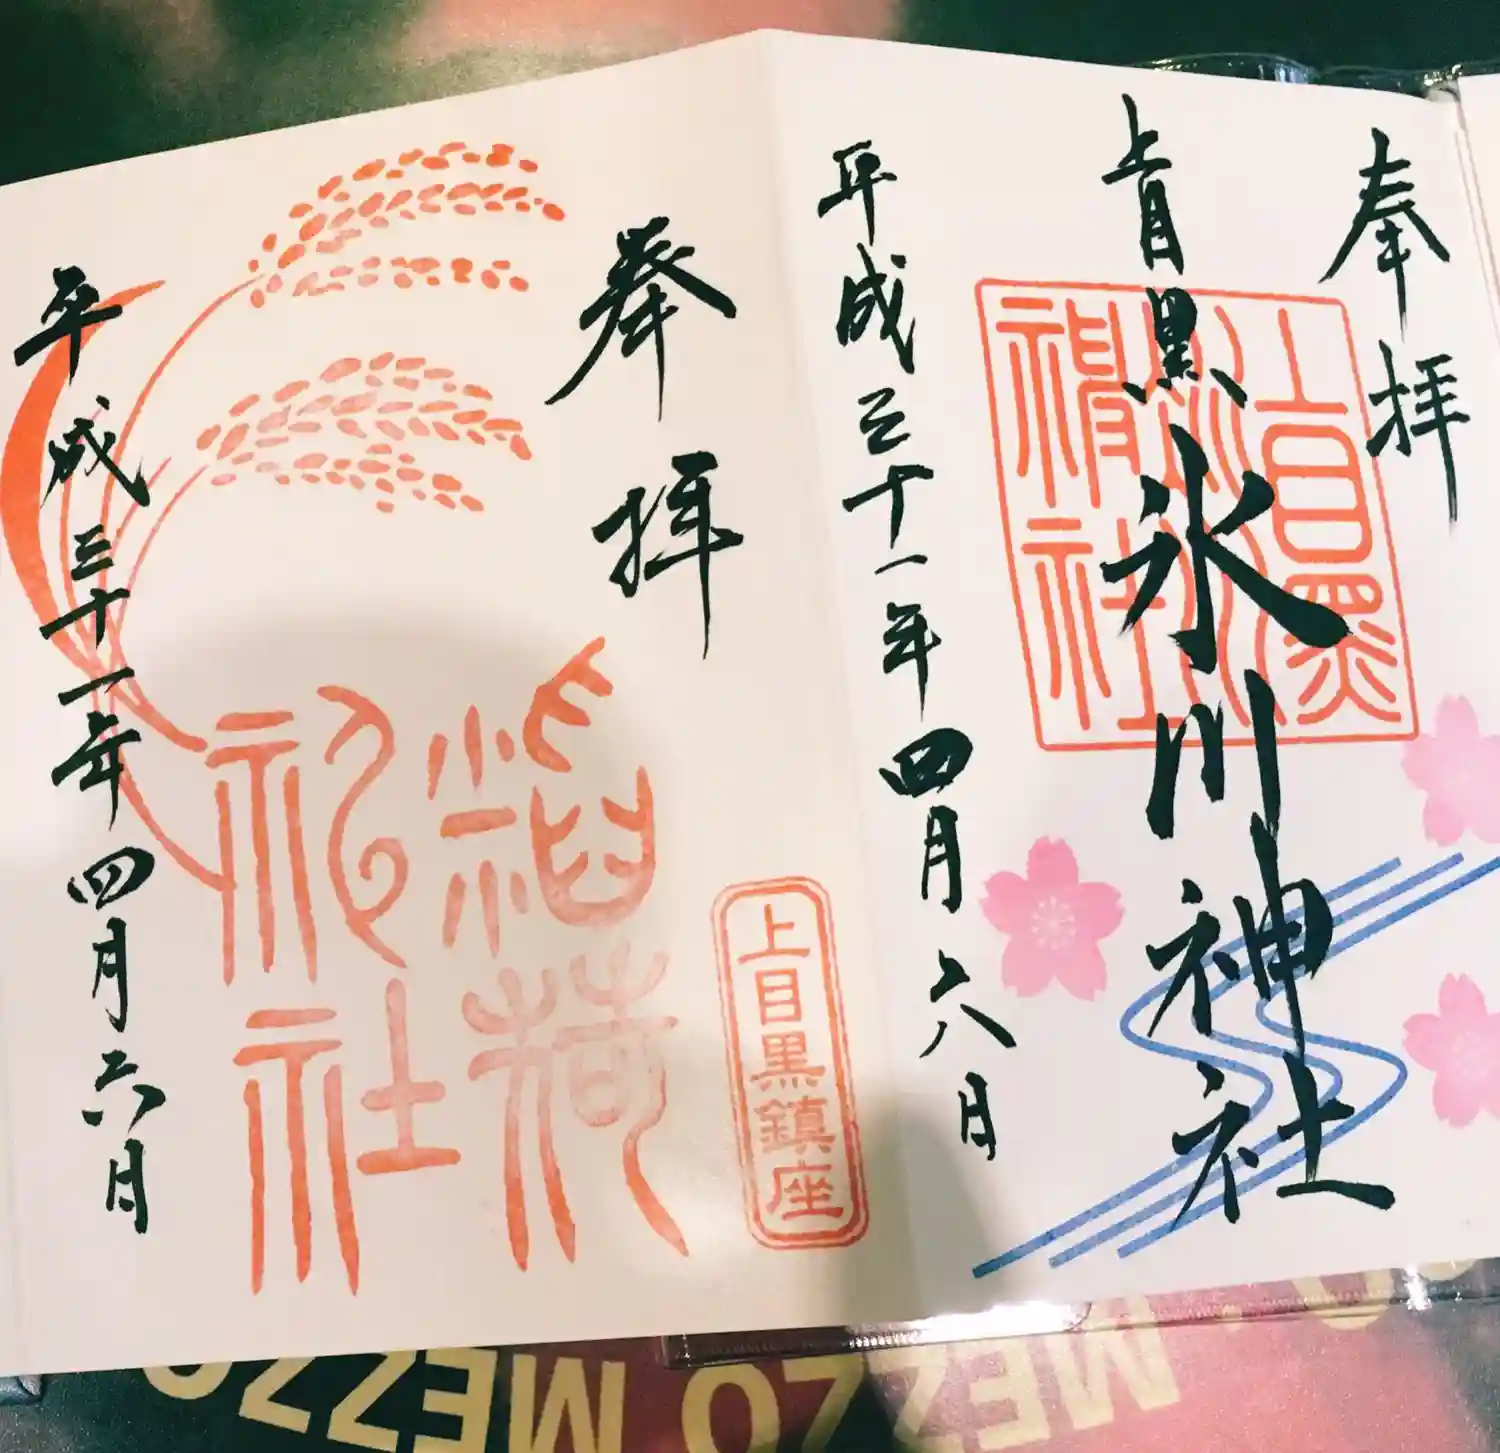 奉拝
上目黒氷川神社
上目黒
氷川
神社
平成三十一年四月六日
奉拝
上目黒鎮座
稲荷
神社
平成三十一年四月六日
MEZZO MEZZO